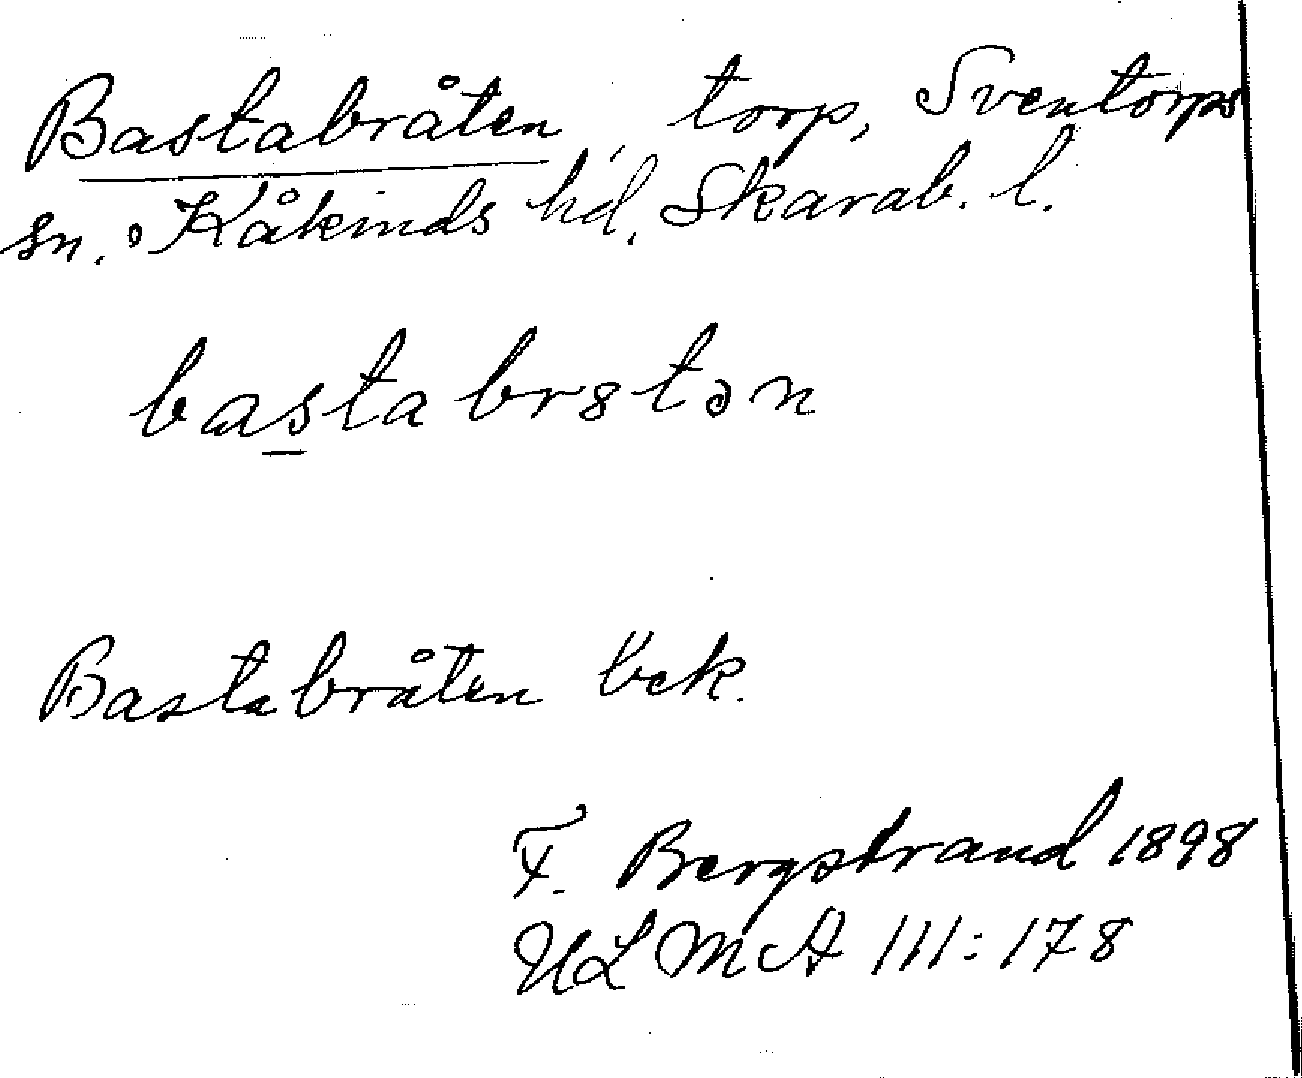 Bastabråten, torp, Sventorps
sn., Kåkinds hd, Skarab. l.
bastabr8tən
Bastabråten bek.
F. Bergstrand 1898
ULMA 111:178